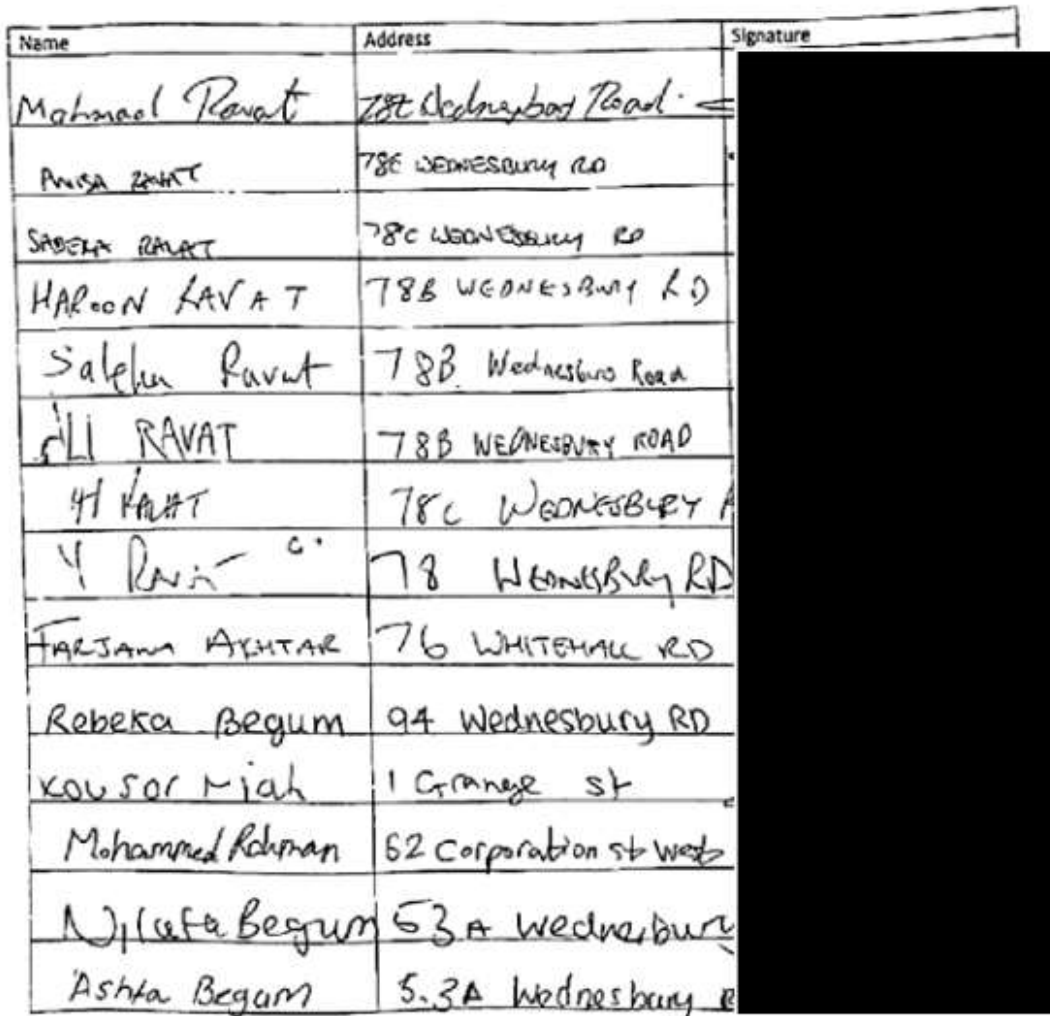 Name Address Signature
Mahmad Ravat 78E Wednesbury Road.
ANISA RAVAT 78E WEDNESBURY RD
SABERA RAVAT 78C WEDNESBURY RD
HAROON RAVAT 78B WEDNESBURY RD
Saleha Ravat 78B Wednesbury Road
ALI RAVAT 78B WEDNESBURY ROAD
RAVAT 78C WEDNESBURY
Y 78 WEDNESBURY RD
FARJANA AKHTAR 76 WHITEHALL RD
Rebeka Begum 94 Wednesbury RD
Kousor Miah 1 Grange St
Mohammed Rahman 62 Corporation st West
Begum 53A Wednesbury
Begum 53A Wednesbury